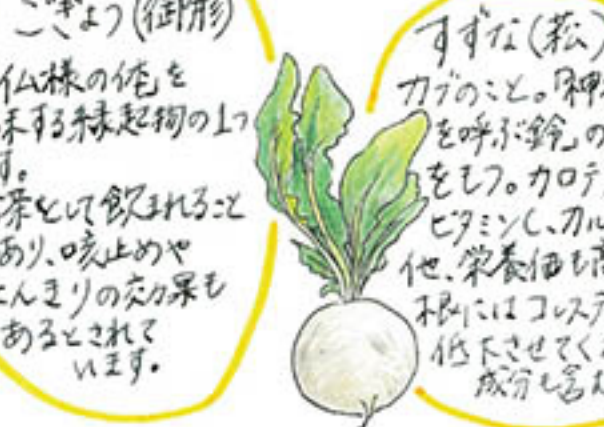 ごぎょう(御形)
仏様の体を
味する縁起物の1つ
す。
茶として飲まれること
あり、咳止めや
たんきりの効果も
あるとされて
います。
すずな(菘)
カブのこと。「神
を呼ぶ鈴」の
をもつ。カロテ
ビタミンC、カル
他、栄養価も高
根にはコレステ
低下させてくる
成分も含む